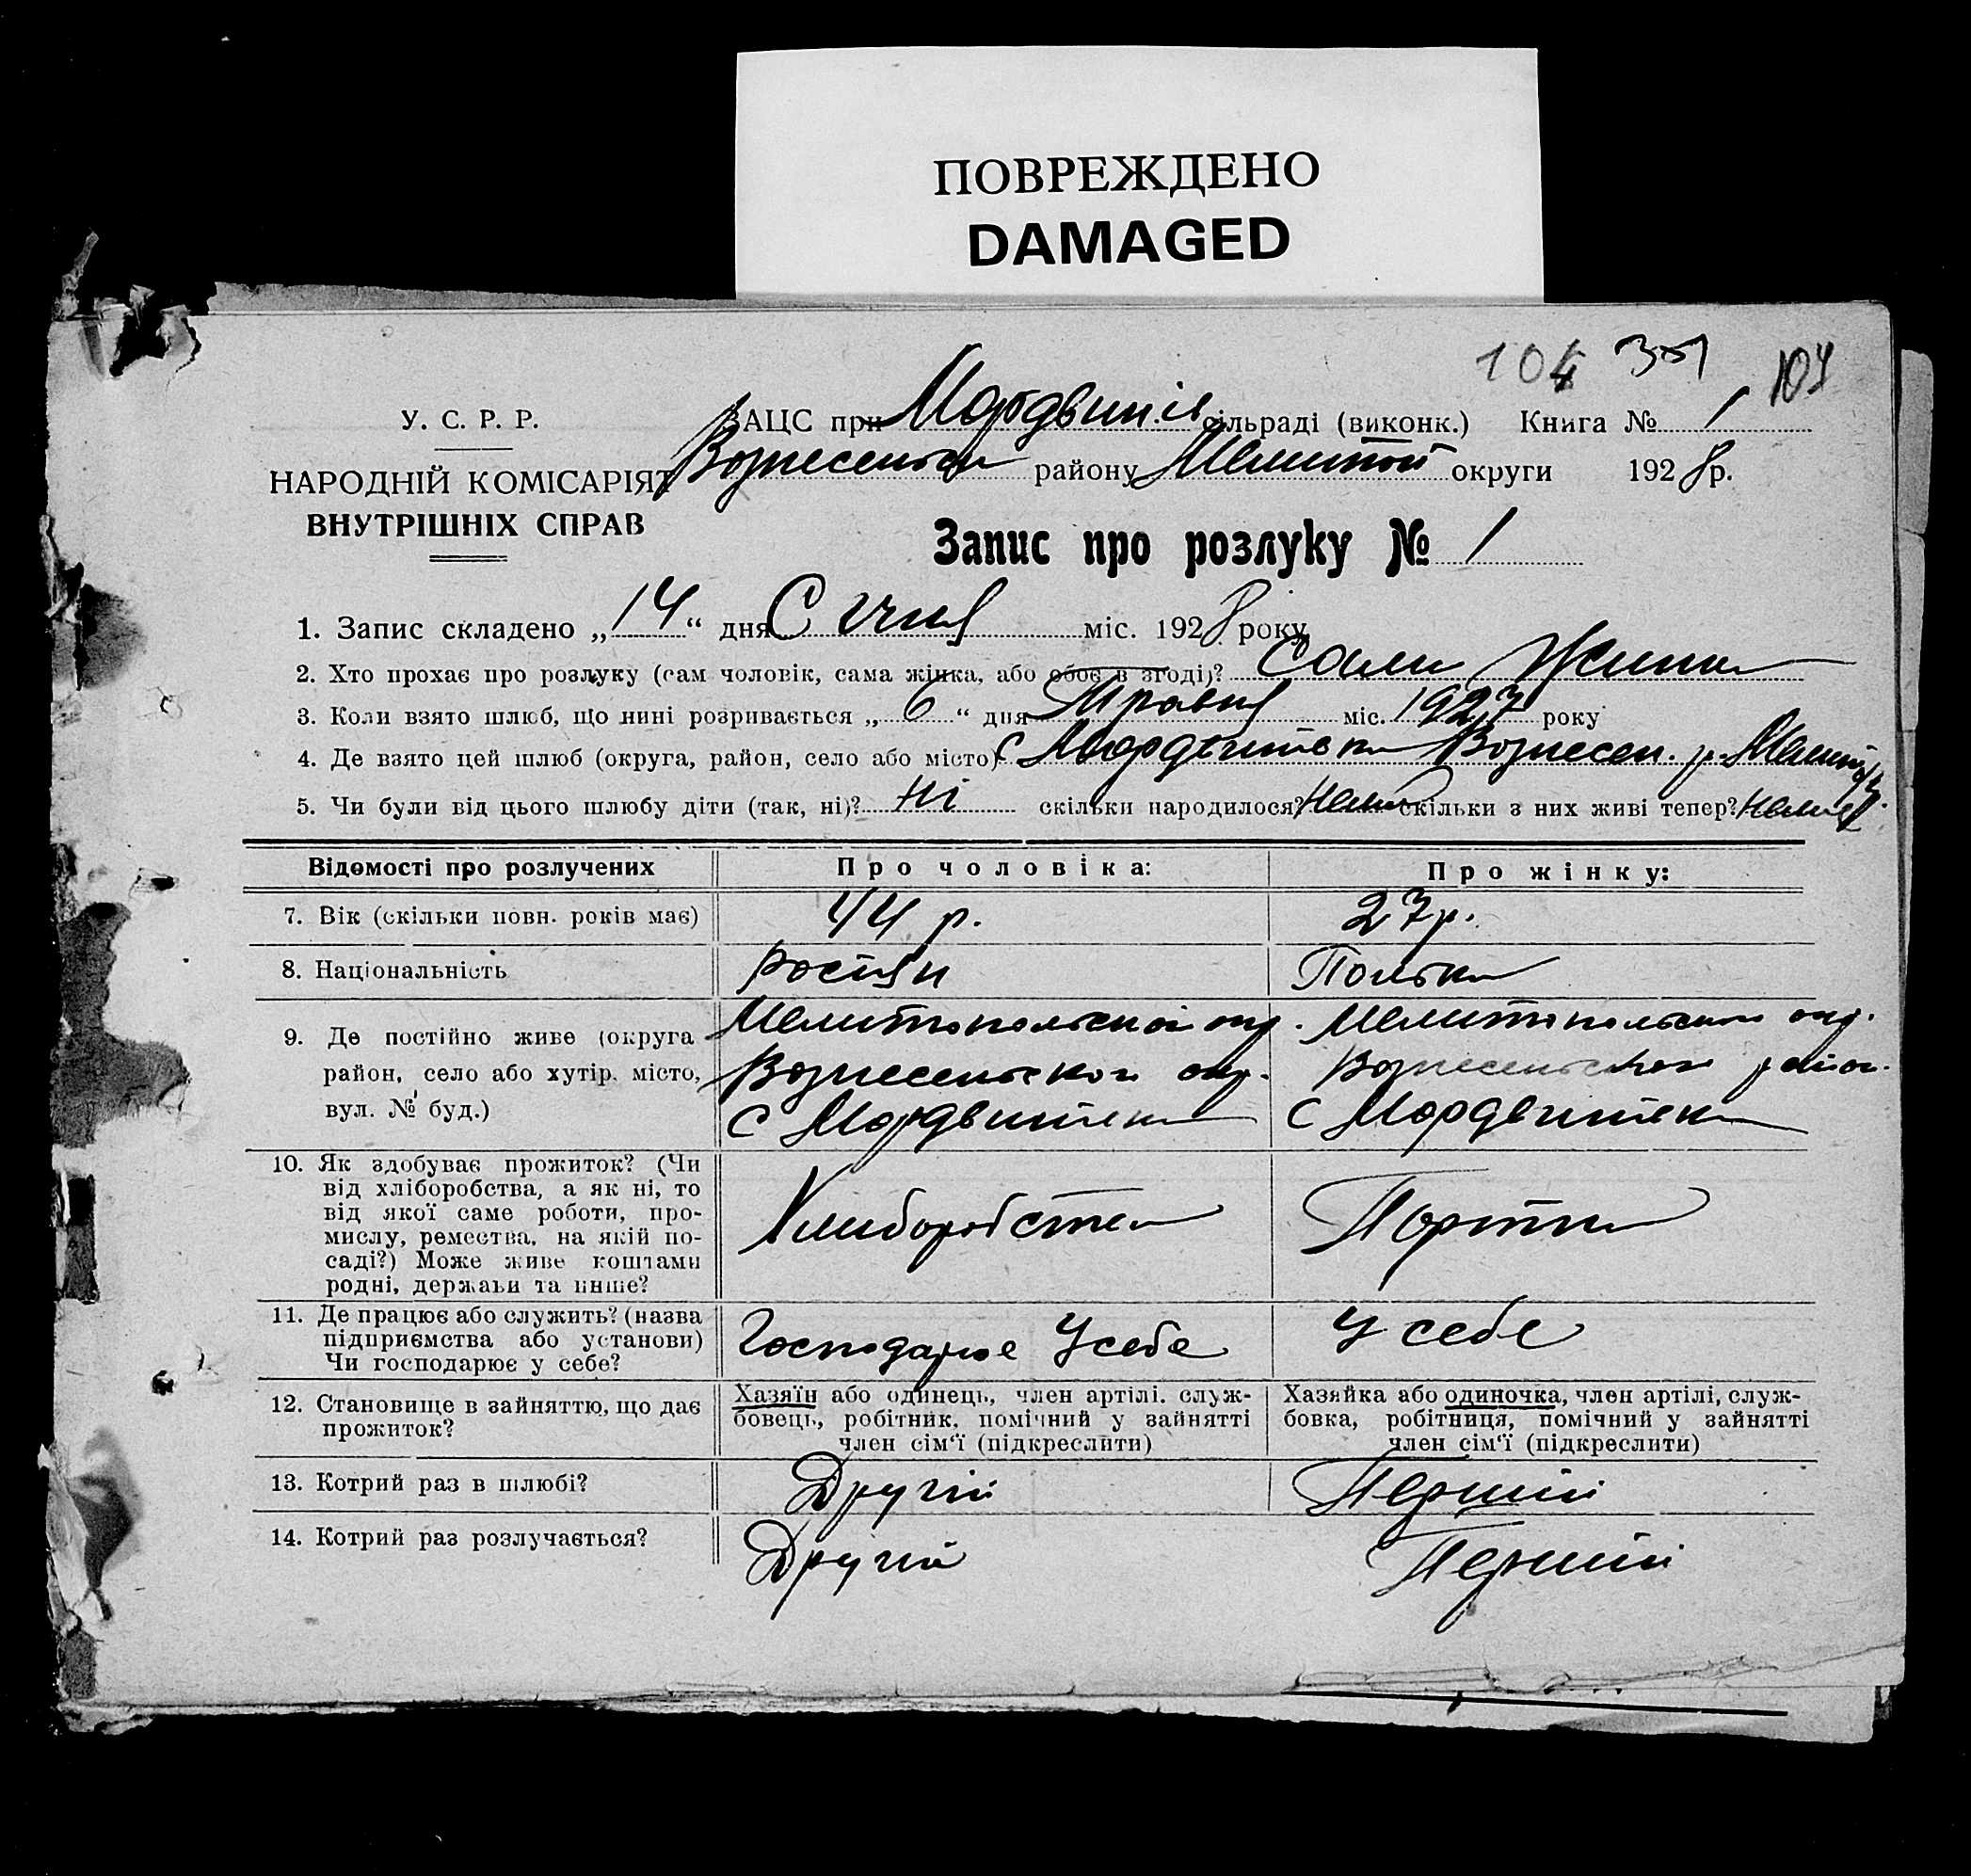 ПОВРЕЖДЕНО
DAMAGED
104 104
У. С. Р. Р.
НАРОДНІЙ КОМІСАРІЯТ
ВНУТРІШНІХ СПРАВ
ЗАЦС при Мордвин. сільраді (виконк.) Книга № 1
Вознесенськ району Мелитоп округи 1928 р.
Запис про розлуку № 1
1. Запис складено „ 14 “ дня Січня міс. 1928 року
2. Хто прохає про розлуку (сам чоловік, сама жінка, або обоє в згоді)? Сами Жинка
3. Коли взято шлюб, що нині розривається „ 6 “ дня Травня міс. 1927 року
4. Де взято цей шлюб (округа, район, село або місто) с Мордвинівка Вознесен. р.
5. Чи були від цього шлюбу діти (так, ні)? Ні скільки народилося? Немає скільки з них живі тепер? Немає
Відомості про розлучених Про чоловіка: Про жінку:
7. Вік (скільки повн. років має) 44 р. 27 р.
8. Національність росіян Полька
9. Де постійно живе (округа район, село або хутір, місто, вул. № буд.)
Мелитопольскоі окр.
Вознесенського окр.
с Мордвинівка
Мелитопольскои окр.
Вознесенського район.
с Мордвинівка
10. Як здобуває прожиток? (Чи
від хліборобства, а як ні, то
від якої саме роботи, про-
мислу, ремества, на якій по-
саді?) Може живе коштами
родні, держави та инше?
Хлиборобства
11. Де працює або служить? (назва
підприємства або установи)
Чи господарює у себе?
Господарює Усебе У себе
12. Становище в зайняттю, що дає
прожиток?
Хазяїн або одинець, член артілі, служ-
бовець, робітник, помічний у зайнятті
член сім'ї (підкреслити)
Хазяйка або одиночка, член артілі, служ-
бовка, робітниця, помічний у зайнятті
член сім'ї (підкреслити)
13. Котрий раз в шлюбі? Другій Перший
14. Котрий раз розлучається? Другій Перший